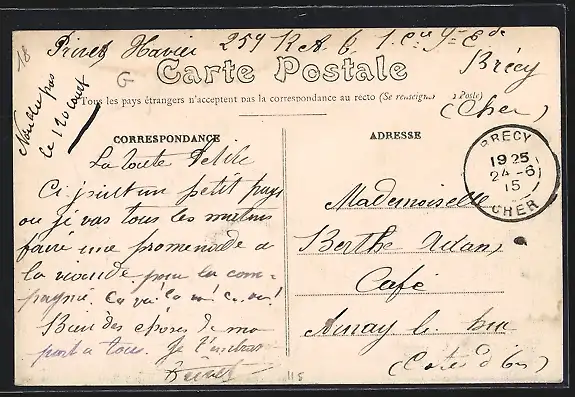 18
Privet Xavier 259 R.A. 6 1.
Brécy
(Cher)
G
Carte Postale
Tous les pays étrangers n'acceptent pas la correspondance au recto (Se renseigner Poste)
le 120 court
CORRESPONDANCE
ADRESSE
BRECY
19 25
24 - 6
15
CHER
La toute Petite
Ci joint un petit pays
ou je vas tous les matins
faire une promenade a
la ronde pour la com-
pagnie. Ca va! la va! ca va!
Bien des choses de ma
part a tous. Je l'embras
Privet
Mademoiselle
Berthe Adan
Café
Arnay le Duc
(Cote d'Or)